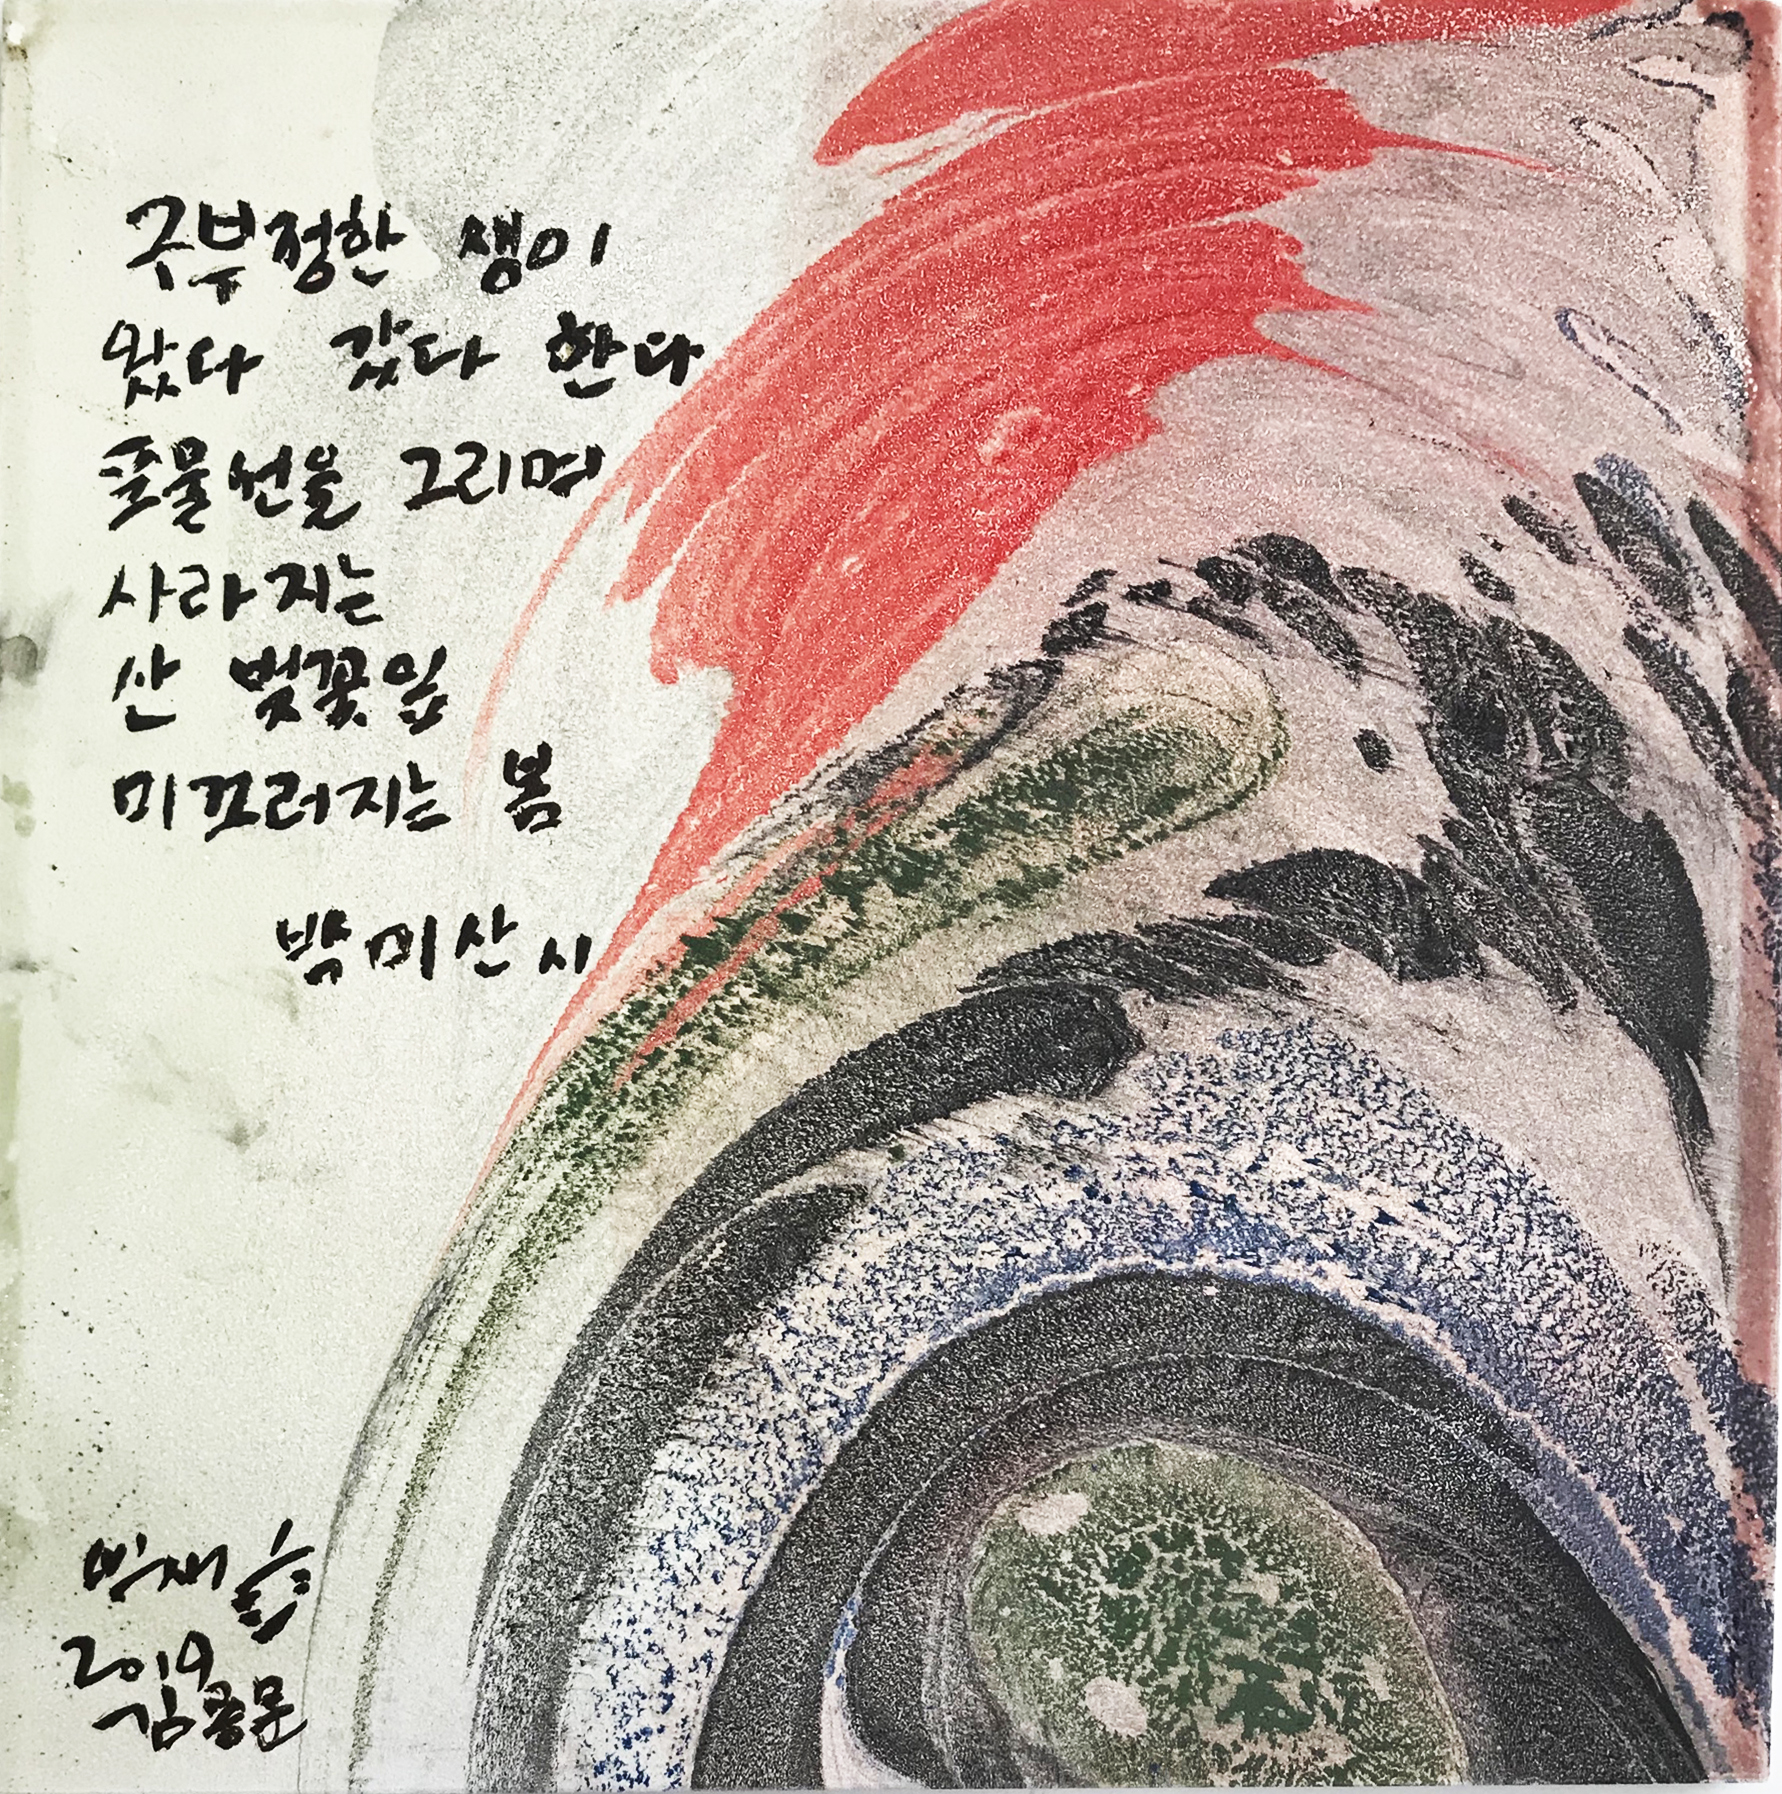 구부정한 생이
왔다 갔다 한다
포물선을 그리며
사라지는
산 벚꽃잎
미끄러지는 봄
박미산 시
2019